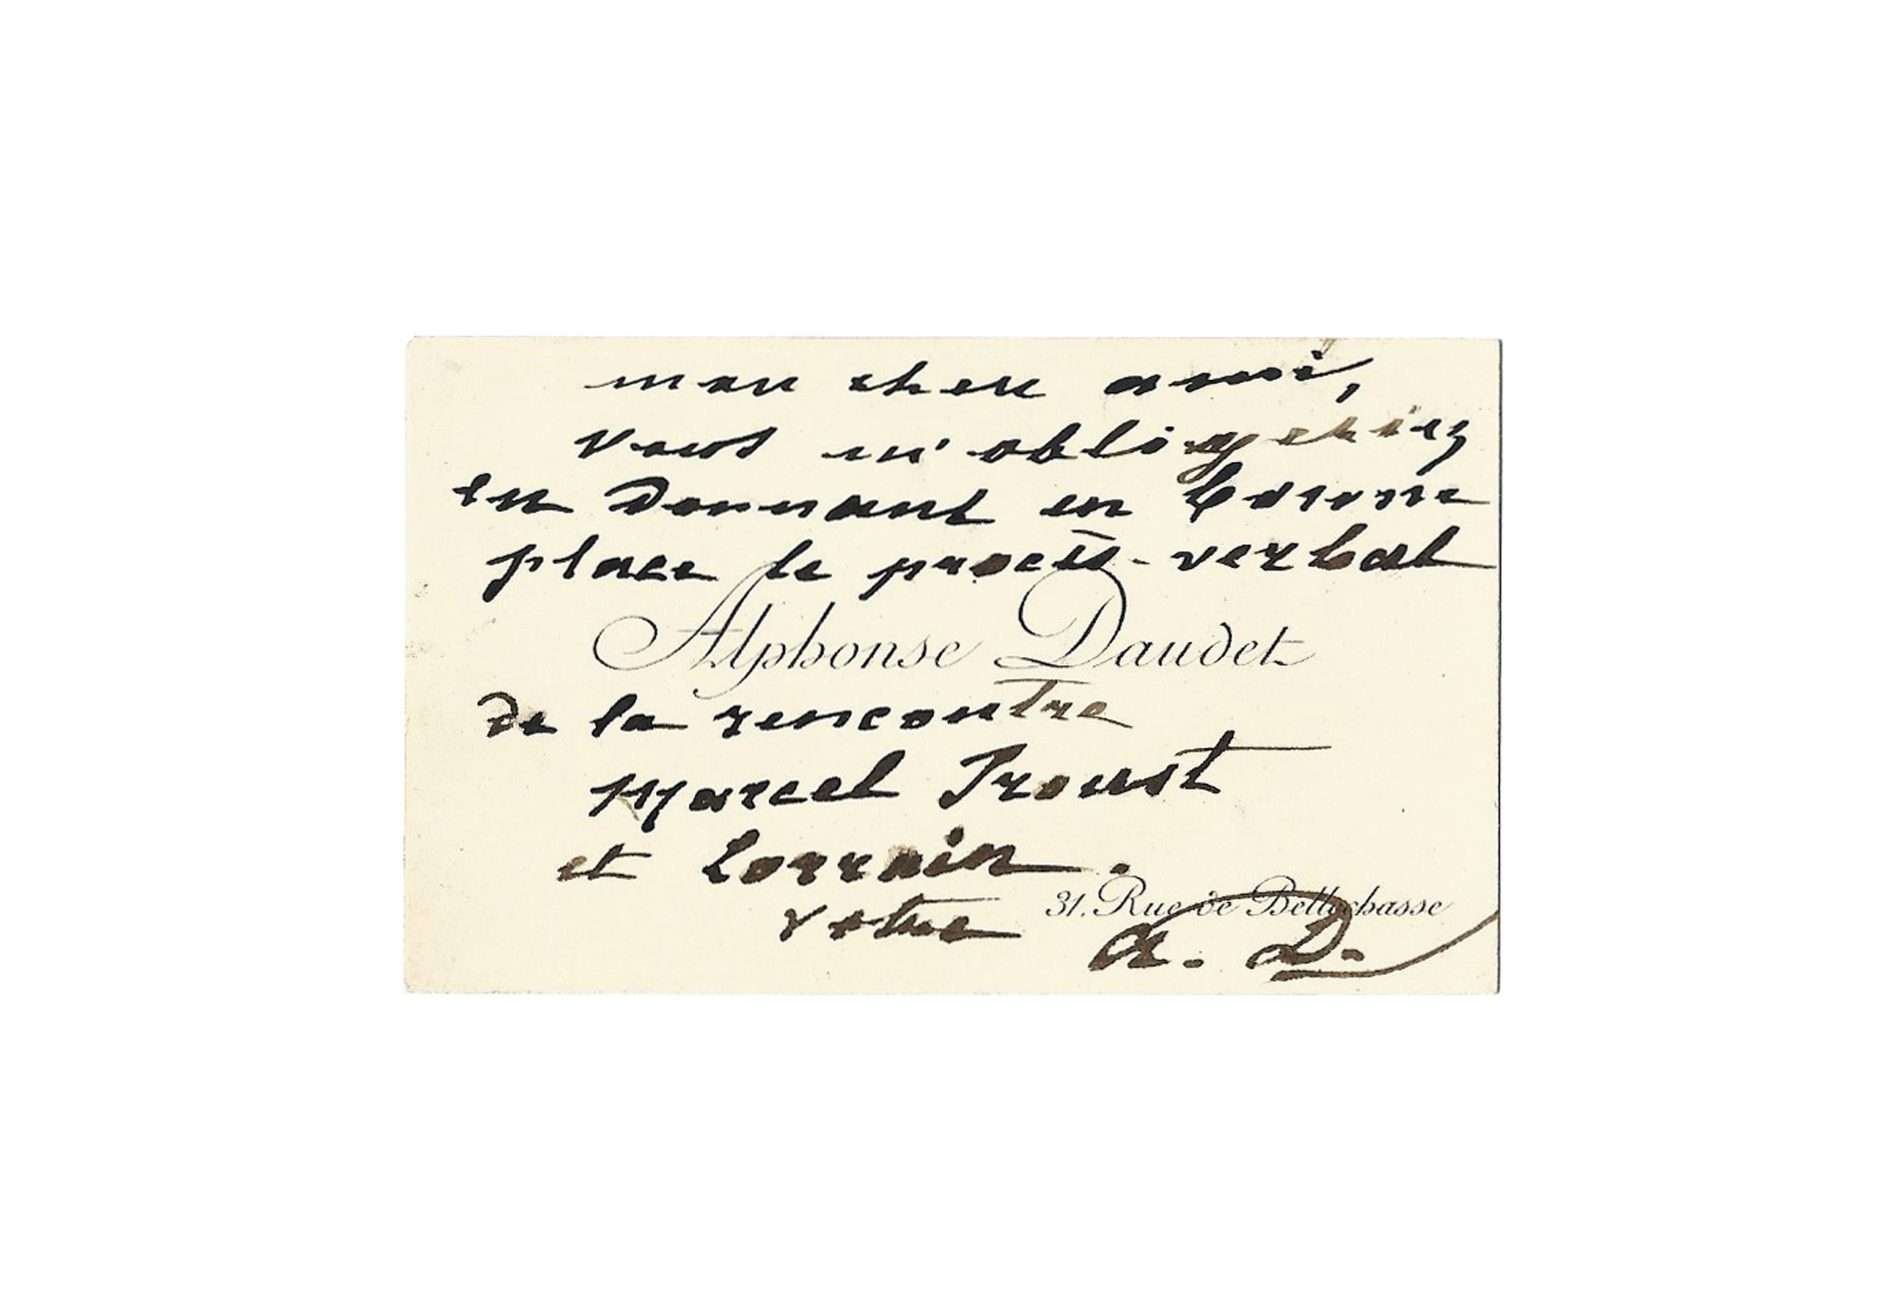 mon cher ami,
vous m'obligeriez
en donnant en bonne
place le procès-verbal
Alphonse Daudet
de la rencontre
Marcel Proust
et Lorrain.
votre
31. Rue de Bellechasse
A. D.